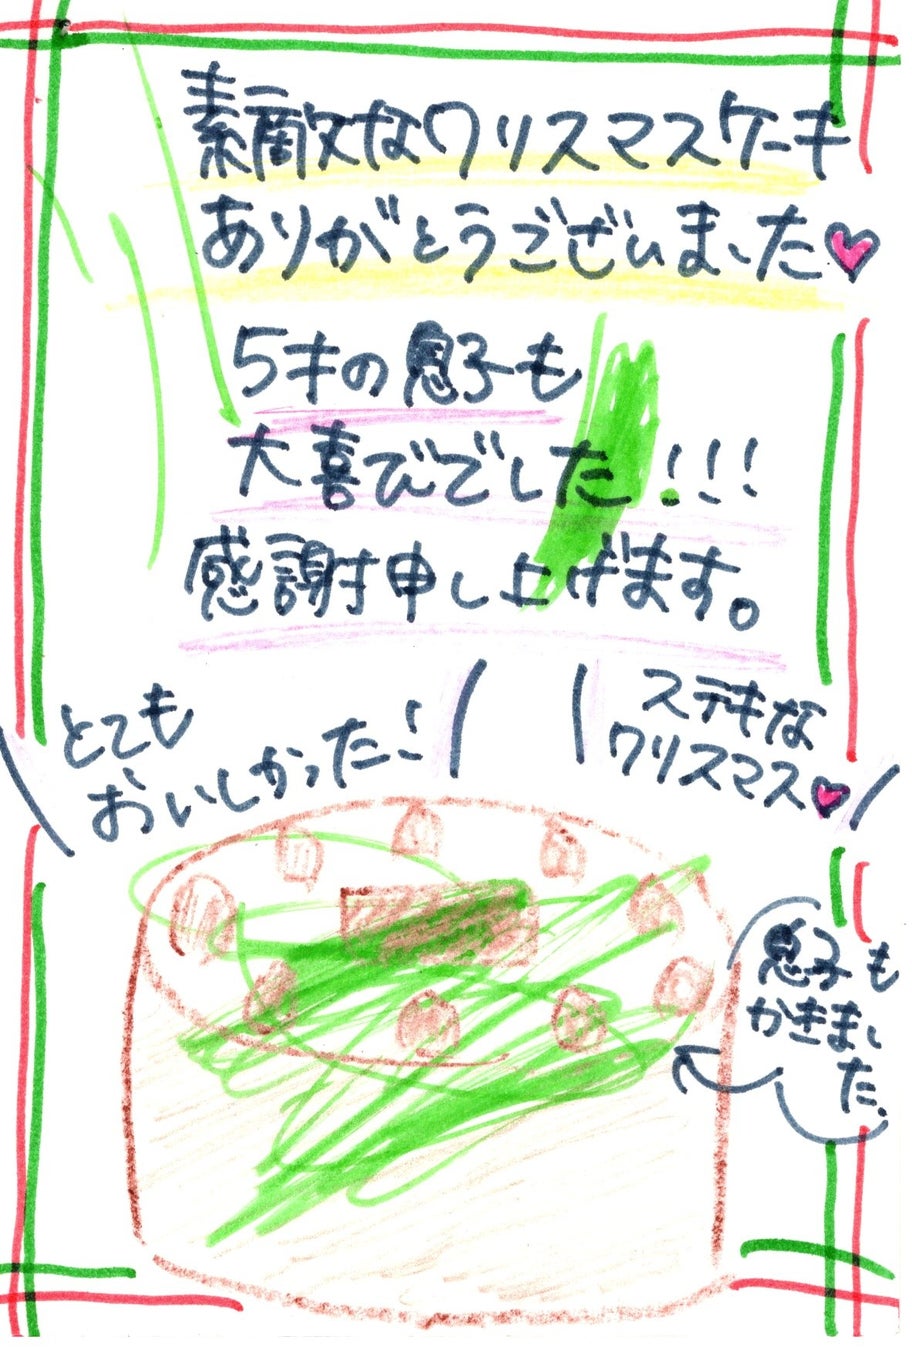 素敵なクリスマスケーキ
ありがとうございました♥
5才の息子も
大喜びでした!!!
感謝申し上げます。
とても
おいしかったー!
ステキな
クリスマス♥
息子も
かきまし
た.